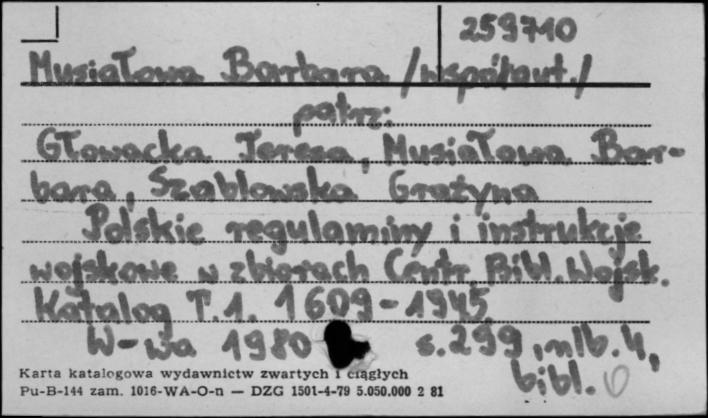 259710
Musiałowa Barbara /współaut./
patrz:
Głowacka Teresa, Musiałowa Bar-
bara, Szablowska Grażyna
Polskie regulaminy i instrukcje
wojskowe w zbiorach Centr. Bibl. Wojsk.
Katalog T.1. 1609-1945
W-wa 1980 s.299, nlb.4,
bibl.
Karta katalogowa wydawnictw zwartych i ciągłych
Pu-B-144 zam. 1016-WA-O-n — DZG 1501-4-79 5.050.000 2 81